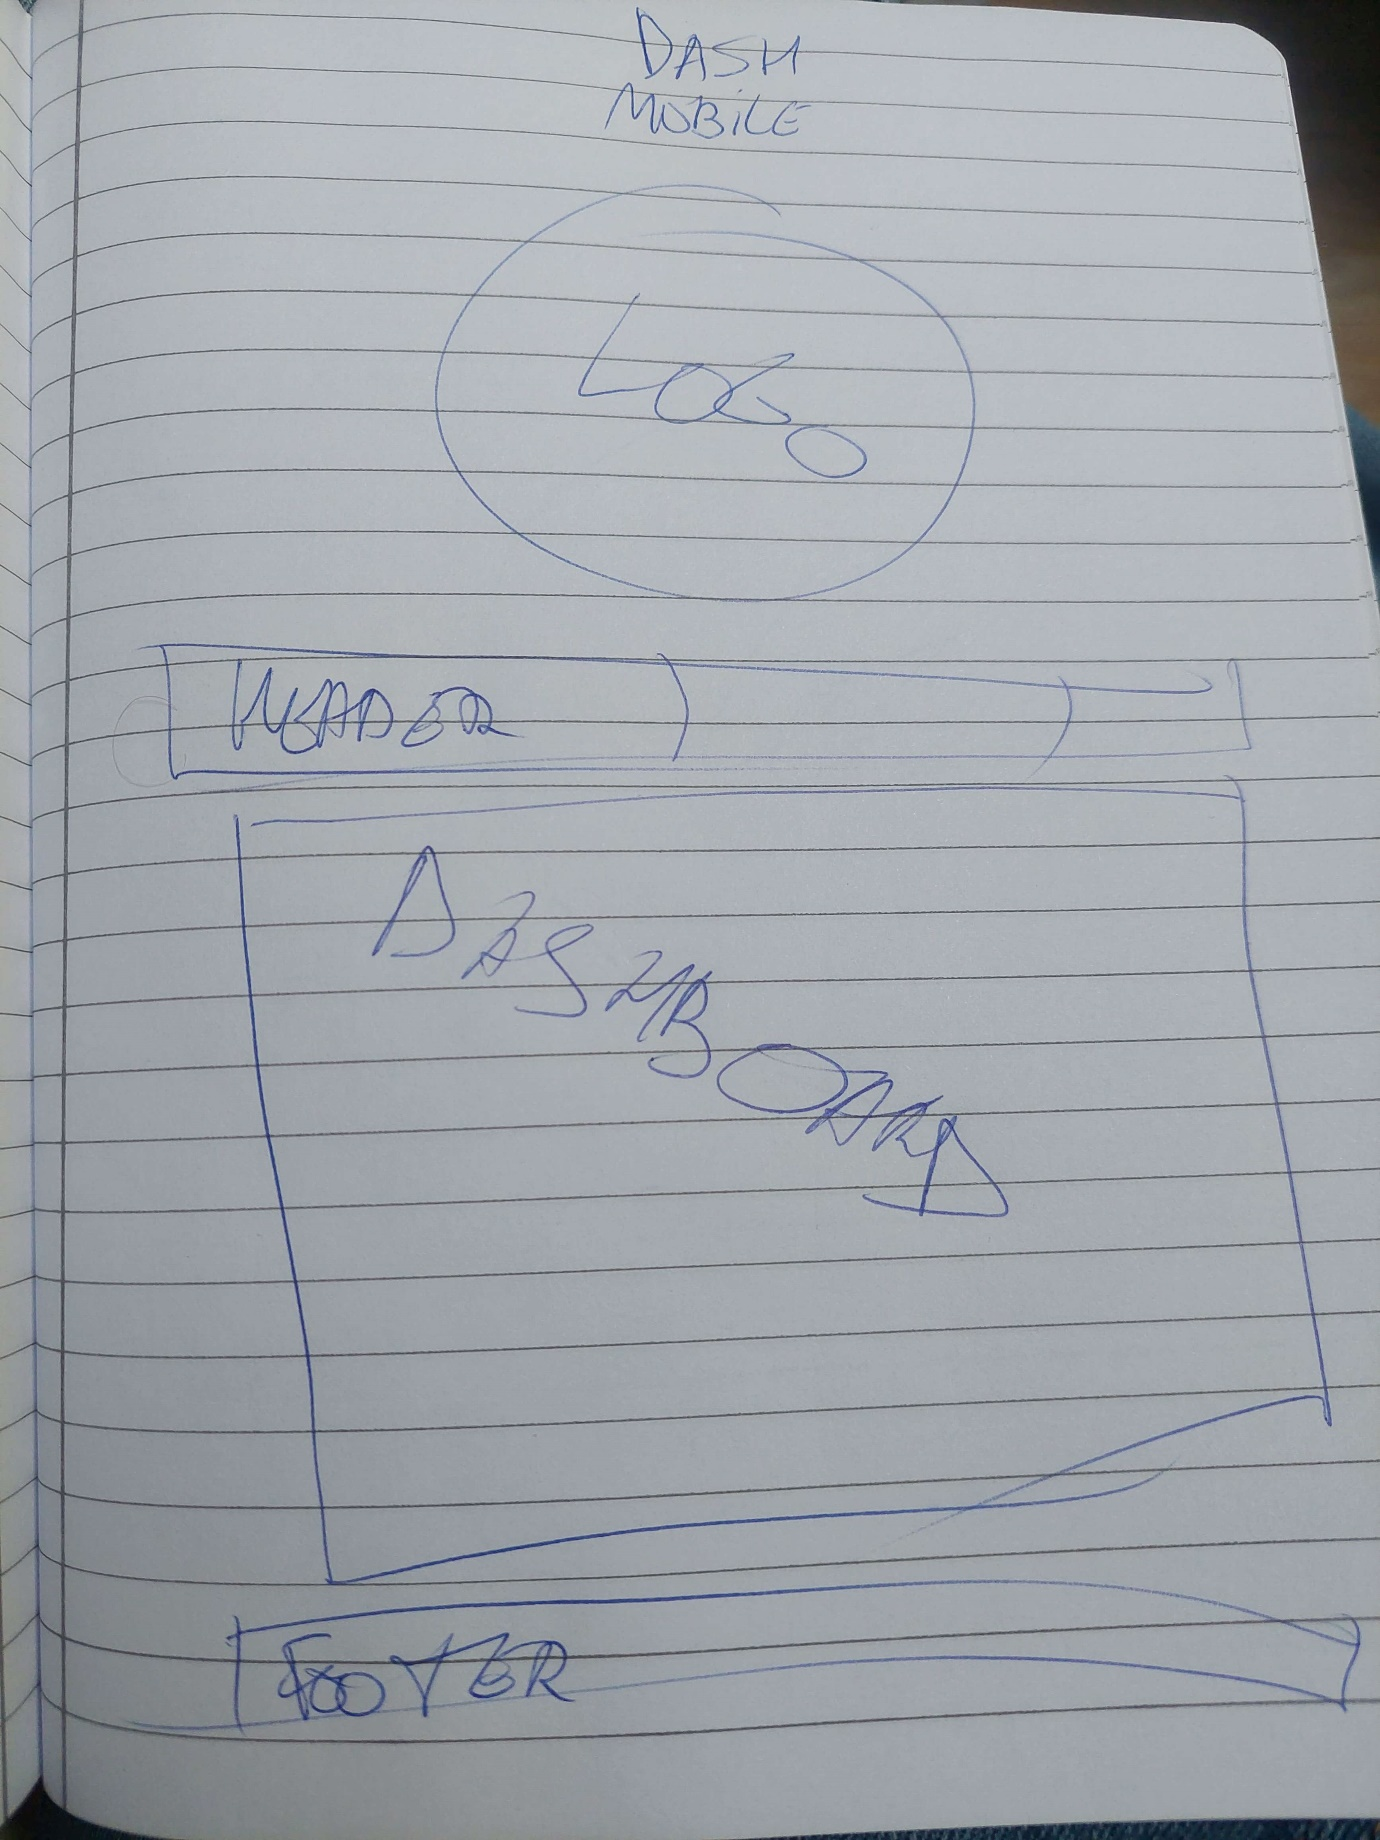 DASH
MOBILE
LOGO
HEADER
DASHBOARD
FOOTER